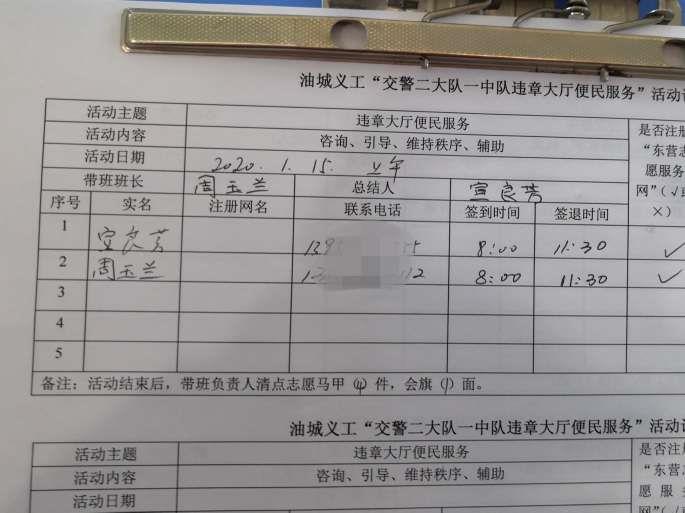 油城义工“交警二大队一中队违章大厅便民服务”活动
活动主题 违章大厅便民服务 是否注册
活动内容 咨询、引导、维持秩序、辅助 “东营志
活动日期 2020.1.15. 上午 愿服务
带班班长 周玉兰 总结人 宣良芳 网”(√或
序号 实名 注册网名 联系电话 签到时间 签退时间 ×)
1 宣良芳 8:00 11:30 ✓
2 周玉兰 8:00 11:30 ✓
3
4
5
备注：活动结束后，带班负责人清点志愿马甲(4)件，会旗(1)面。
油城义工“交警二大队一中队违章大厅便民服务”活动
活动主题 违章大厅便民服务 是否注册
活动内容 咨询、引导、维持秩序、辅助 “东营志
活动日期 愿服务